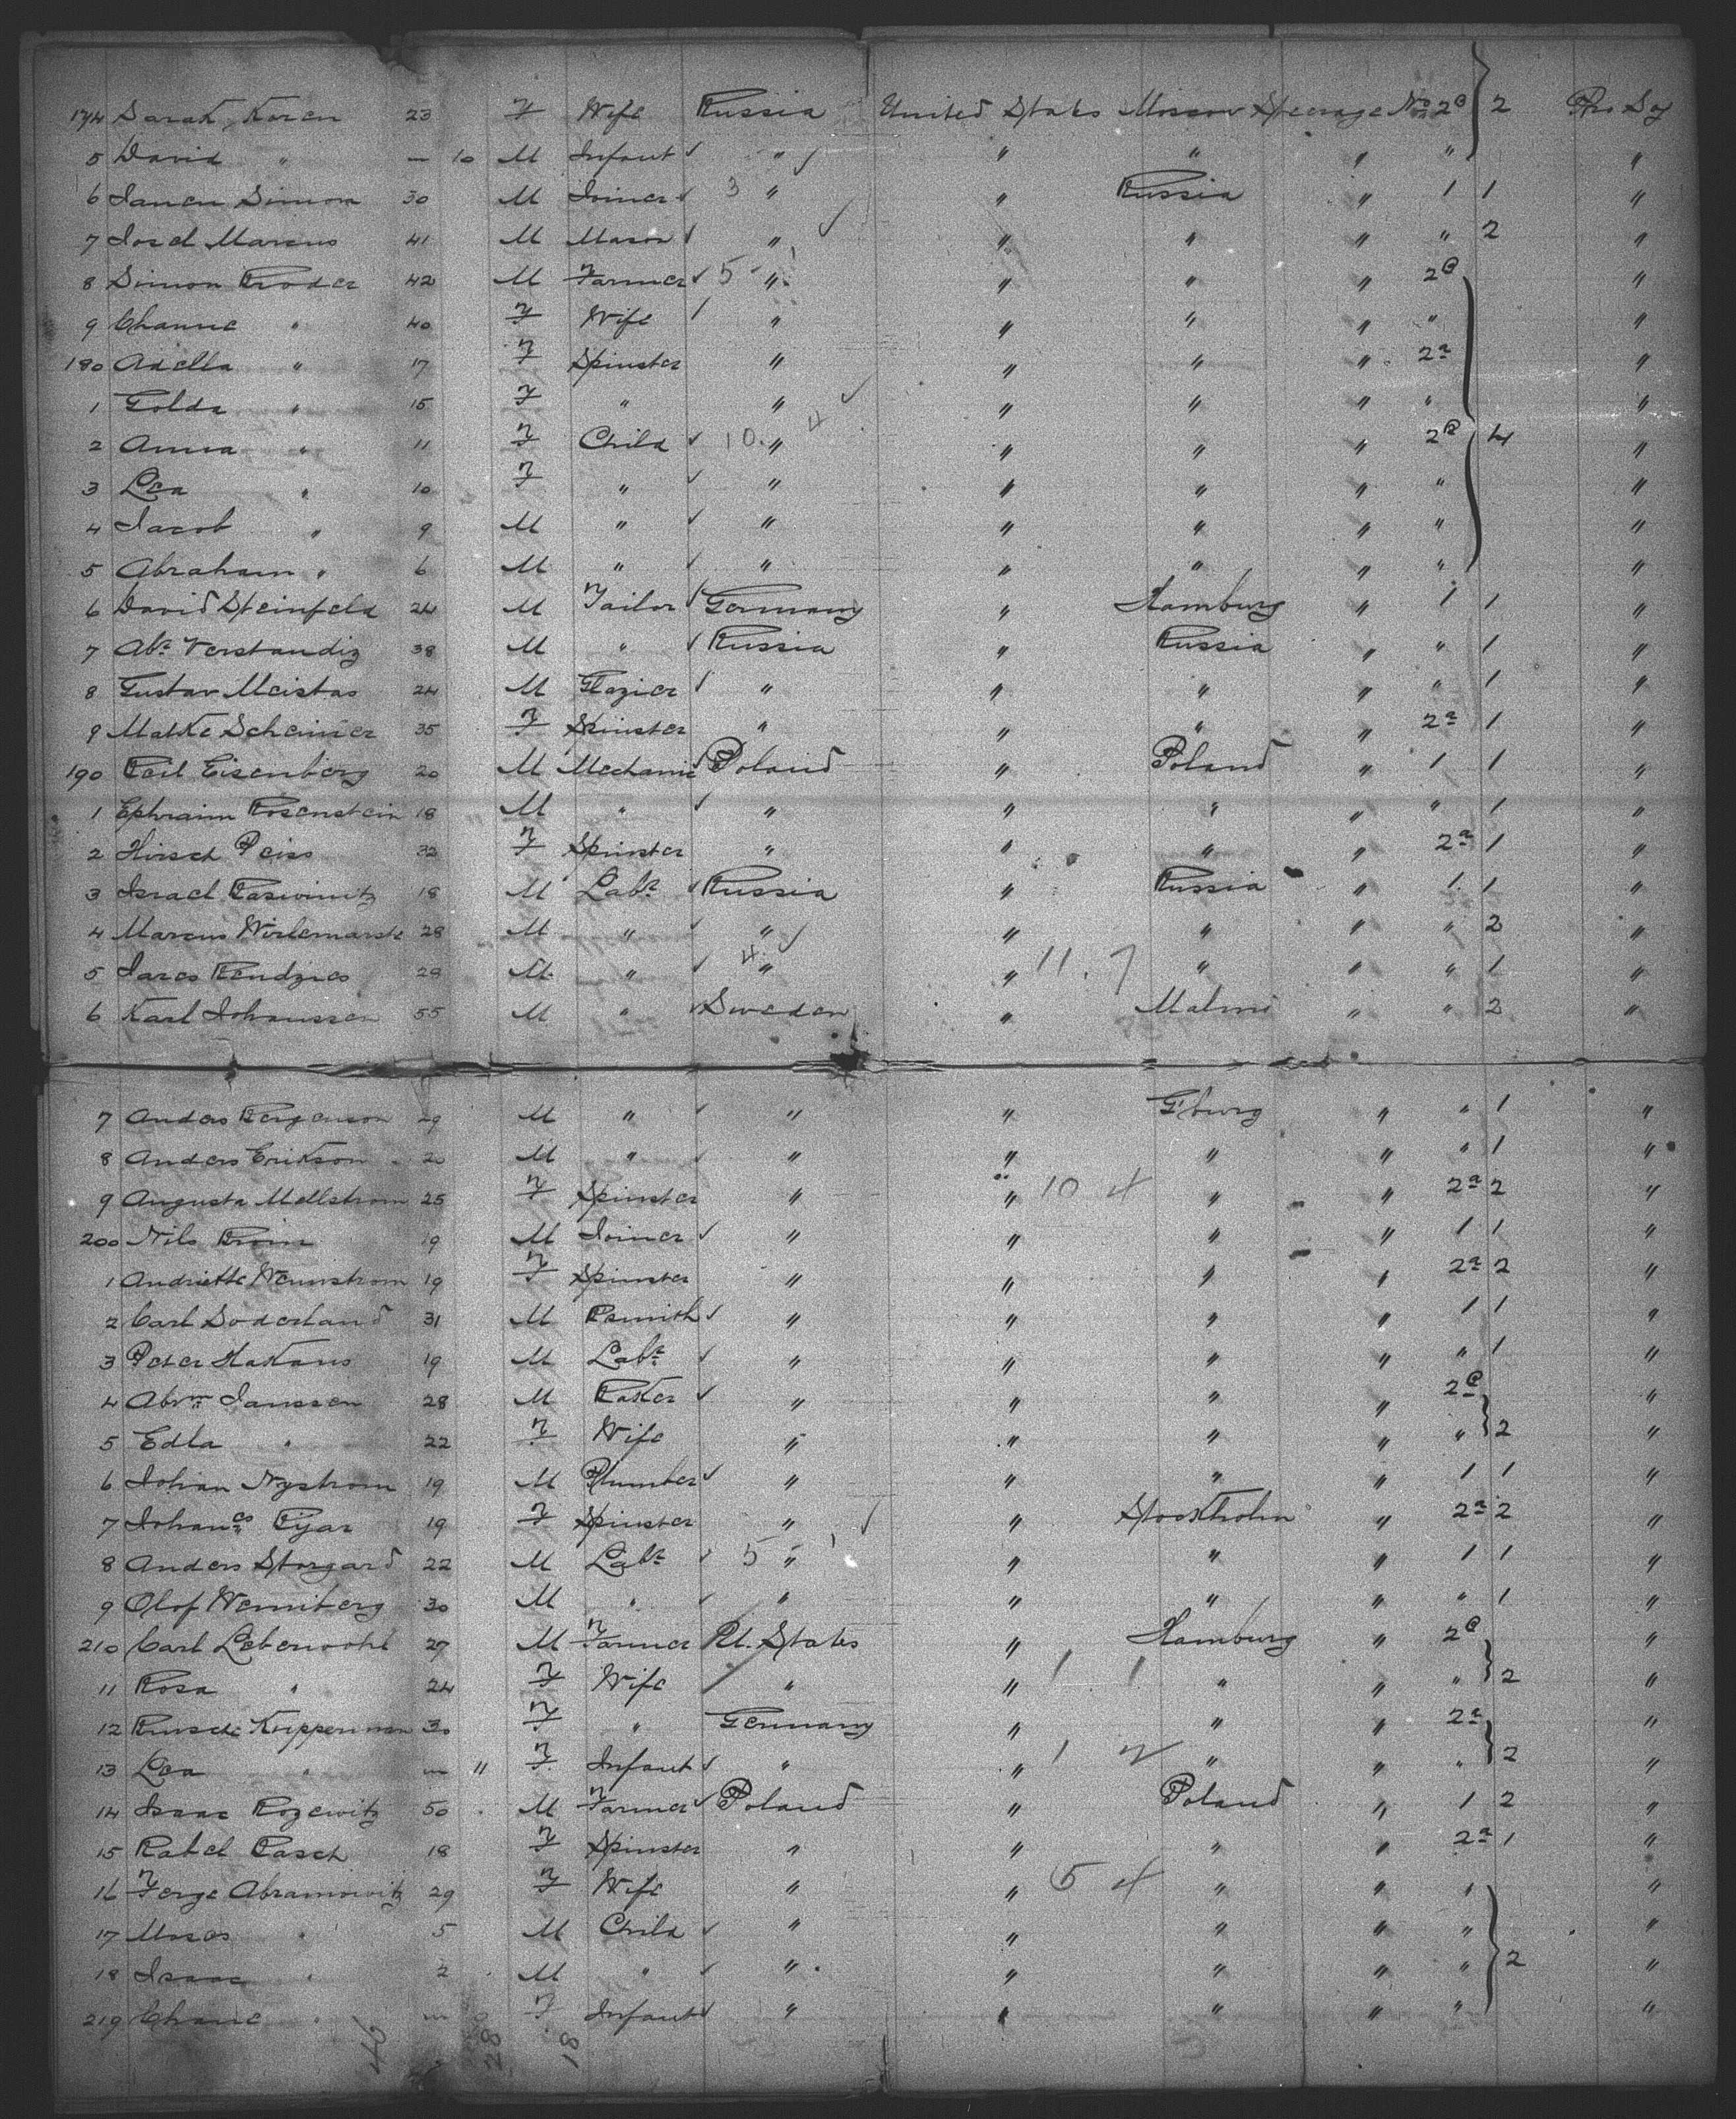 174 Sarah Koren 23 F Wife Russia United States Moscow Steerage No 2c 2 Pro Soj
5 David " — 10 M Infant " " " " " "
6 Janen Simon 30 M Joiner 3 " " Russia " 1 1 "
7 Josel Marcus 41 M Mason " " " " " 2 "
8 Simon Broder 42 M Farmer 5 " " " " 2c "
9 Channe " 40 F Wife " " " " " "
180 Adella " 17 F Spinster " " " " 2a "
1 Golda " 15 F " " " " " " "
2 Anna " 11 F Child 10. 4 " " " " 2c 4 "
3 Lea " 10 F " " " " " " "
4 Jacob " 9 M " " " " " " "
5 Abraham " 6 M " " " " " " "
6 David Steinfeld 24 M Tailor Germany " Hamburg " 1 1 "
7 Abr Verstandig 38 M " Russia " Russia " " 1 "
8 Gustav Meistas 24 M Glazier " " " " " 1 "
9 Malke Scheimer 35 F Spinster " " " " 2a 1 "
190 Beil Eisenberg 20 M Mechanic Poland " Poland " 1 1 "
1 Ephraim Rosenstein 18 M " " " " " " 1 "
2 Hirsch Peiss 32 F Spinster " " " " 2a 1 "
3 Israel 18 M Labr Russia " Russia " 1 1 "
4 Marcus 28 M " " " " " " 2 "
5 29 M " 4 " " 11. 7 " " " 1 "
6 Karl Johanssen 55 M " Sweden " Malmo " " 2 "
7 Anders Bergenson 29 M " " " G'burg " " 1 "
8 Anders Erikson 20 M " " " " " " 1 "
9 Augusta Mellstrom 25 F Spinster " " 10 4 " " 2a 2 "
200 Nils 19 M Joiner " " " " 1 1 "
1 Andriette Wennstrom 19 F Spinster " " " " 2a 2 "
2 Carl Soderland 31 M Bsmith " " " " 1 1 "
3 Peter Hakans 19 M Labr " " " " " 1 "
4 Abrm Janssen 28 M Baker " " " " 2c "
5 Edla " 22 F Wife " " " " " 2 "
6 Johan Nystrom 19 M Plumber " " " " 1 1 "
7 Johanes 19 F Spinster " " Stockholm " 2a 2 "
8 Anders Storgard 22 M Labr 5 1 " " " " 1 1 "
9 Olof Wenniberg 30 M " " " " " " 1 "
210 Carl Lebenwohl 27 M Farmer Ut. States " Hamburg " 2c "
11 Rosa " 24 F Wife " " 1 1 " " " 2 "
12 Kupperman 30 F " Germany " " " 2a "
13 Lea " — 11 F Infant " " 1 2 " " " 2 "
14 Isaac Rozewitz 50 M Farmer Poland " Poland " 1 2 "
15 Rahel Rasch 18 F Spinster " " " " 2a 1 "
16 Ferge Abramowitz 29 F Wife " " 5 4 " " " "
17 Moses " 5 M Child " " " " " "
18 Isaac " 2 M " " " " " " 2 "
219 Chane " F Infant " " " " " "
46 28 18